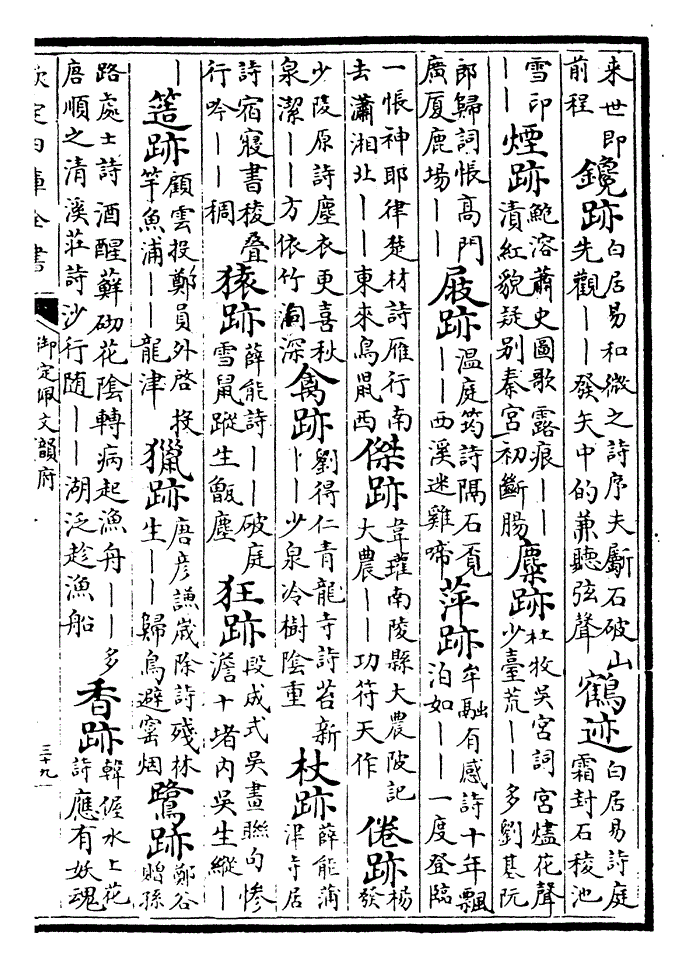 来世即前程 鑱跡 白居易和微之詩序夫斸石破山先觀——發矢中的兼聽弦聲 鶴迹 白居易詩庭霜封石稜池
雪印—— 煙跡 鮑溶蕭史圖歌露痕——漬紅貌疑别秦宮初斷腸 麋跡 杜牧吳宮詞宮燼花聲少臺荒——多劉基阮
郎歸詞悵高門廣厦鹿場—— 屐跡 温庭筠詩隔石覔——西溪迷雞啼 萍跡 牟融有感詩十年飄泊如——一度登臨
一悵神耶律楚材詩雁行南去瀟湘北——東來鳥鼠西 傑跡 韋瓘南陵縣大農陂記大農——功符天作 倦跡 楊發
少陵原詩塵衣更喜秋泉潔——方依竹洞深 禽跡 劉得仁青龍寺詩苔新——少泉冷樹陰重 杖跡 薛能蒲津寺居
詩宿寢書稜疊行吟——稠 猿跡 薛能詩——破庭雪鼠蹤生甑塵 狂跡 段成式吳畫聮句惨澹十堵内吳生縱—
— 跡 顧雲投鄭員外啓投竿魚浦——龍津 獵跡 唐彦謙歲除詩殘林生——歸鳥避窰烟 鷺跡 鄭谷贈孫
路處士詩酒醒蘚砌花陰轉病起漁舟——多唐順之清溪莊詩沙行随——湖泛趁漁船 香跡 韓偓水上花詩應有妖魂
欽定四庫全書 御定佩文韻府 三十九